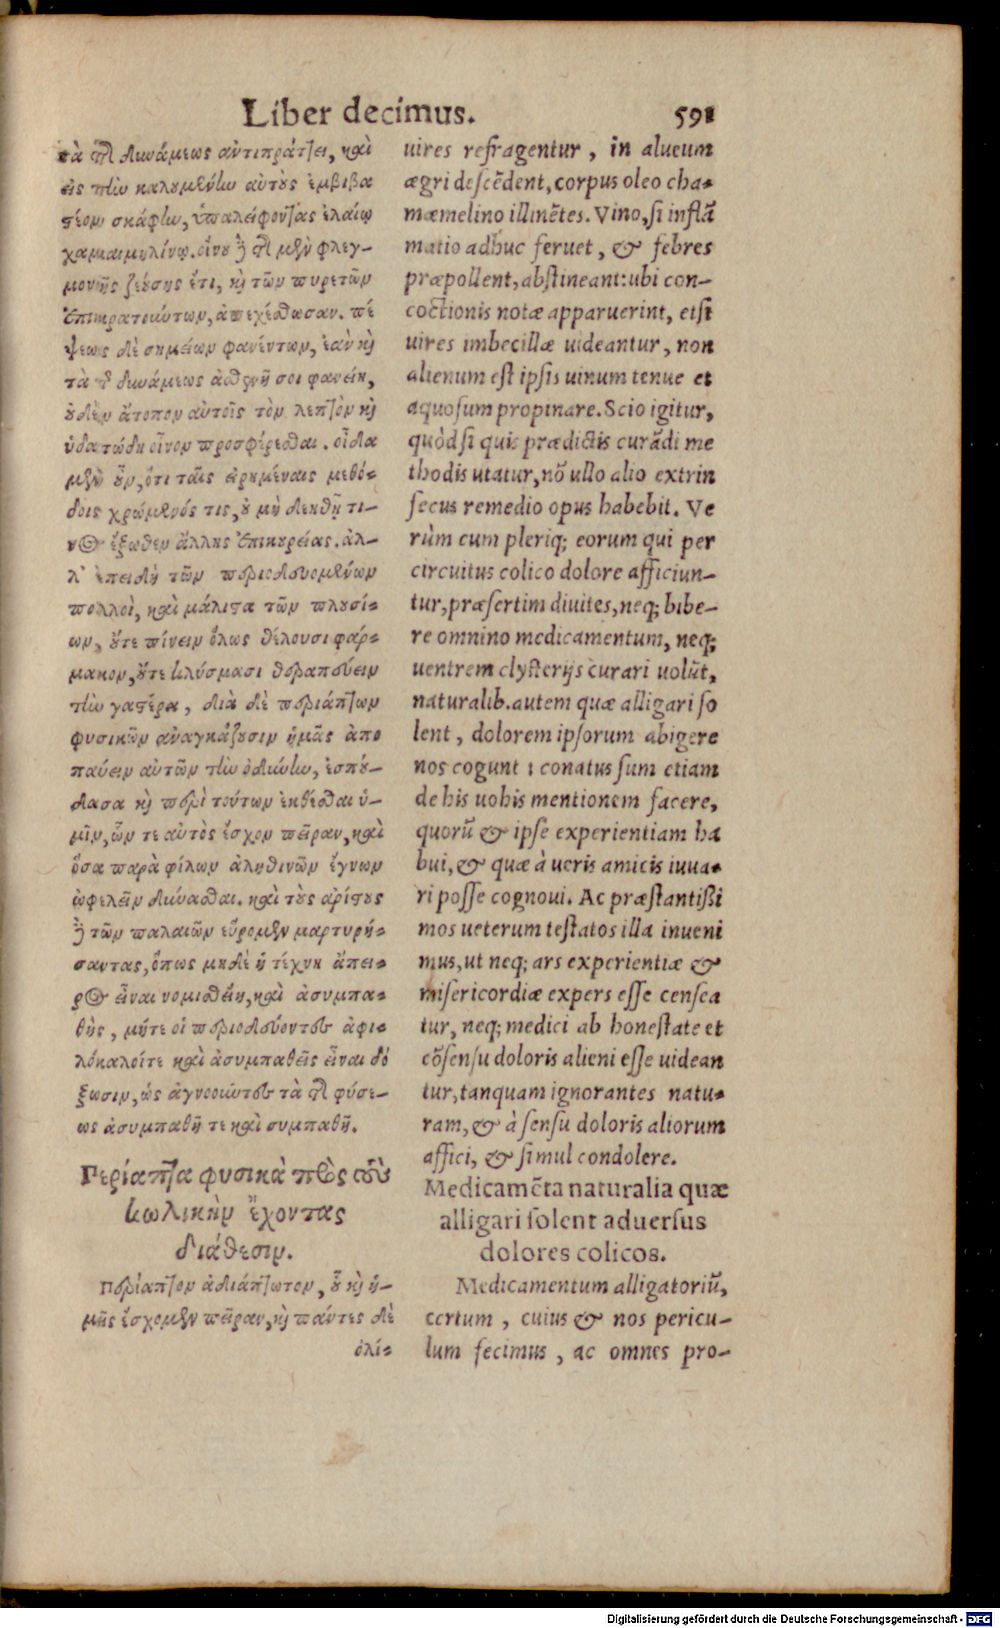 Liber decimus. 591
τὰ τῆς δυνάμεως ἀντιπράττει, καὶ
εἰς τὴν καλουμένην αὐτοὺς ἐμβιβα
στέον σκάφην, ὑπαλείφοντας ἐλαίῳ
χαμαιμηλίνῳ. οἴνου δὲ τῆς μὲν φλεγ-
μονῆς ζεούσης ἔτι, καὶ τῶν πυρετῶν
ἐπικρατούντων, ἀπεχέσθωσαν. πέ
ψεως δὲ σημείων φανέντων, ἐὰν καὶ
τὰ τῆς δυνάμεως ἀσθενῆ σοι φανείη,
οὐδὲν ἄτοπον αὐτοῖς τὸν λεπτὸν καὶ
ὑδατώδη οἶνον προσφέρεσθαι. οἶδα
μὲν οὖν, ὅτι ταῖς εἰρημέναις μεθό-
δοις χρώμενός τις, οὐ μὴ δεηθῇ τι-
νος ἔξωθεν ἄλλης ἐπικουρείας. ἀλ-
λ' ἐπειδὴ τῶν περιοδευομένων
πολλοὶ, καὶ μάλιστα τῶν πλουσί-
ων, οὔτε πίνειν ὅλως θέλουσι φάρ-
μακον, οὔτε κλύσμασι θεραπεύειν
τὴν γαστέρα, διὰ δὲ περιάπτων
φυσικῶν ἀναγκάζουσιν ἡμᾶς ἀπο
παύειν αὐτῶν τὴν ὀδύνην, ἐσπού-
δασα καὶ περὶ τούτων ἐκθέσθαι ὑ-
μῖν, ὧν τε αὐτὸς ἔσχον πεῖραν, καὶ
ὅσα παρὰ φίλων ἀληθινῶν ἔγνων
ὠφελεῖν δύνασθαι. καὶ τοὺς ἀρίστους
δὲ τῶν παλαιῶν εὕρομεν μαρτυρή-
σαντας, ὅπως μηδὲ ἡ τέχνη ἄπει-
ρος εἶναι νομισθείη, καὶ ἀσυμπα-
θὴς, μήτε οἱ περιοδεύοντες ἀφι-
λόκαλοίτε καὶ ἀσυμπαθεῖς εἶναι δό
ξωσιν, ὡς ἀγνοοῦντες τὰ τῆς φύσε-
ως ἀσυμπαθῆ τε καὶ συμπαθῆ.
Περίαπτα φυσικὰ πρὸς τοὺς
κωλικὴν ἔχοντας
διάθεσιν.
Περίαπτον ἀδιάπτωτον, οὗ καὶ ἡ-
μεῖς ἔσχομεν πεῖραν, καὶ πάντες δὲ
ὀλί-
uires refragentur, in alueum
ægri descēdent, corpus oleo cha-
mæmelino illinētes. Vino, si inflā
matio adhuc feruet, & febres
præpollent, abstineant: ubi con-
coctionis notæ apparuerint, etsi
uires imbecillæ uideantur, non
alienum est ipsis uinum tenue et
aquosum propinare. Scio igitur,
quòd si quis prædictis curādi me
thodis utatur, nō ullo alio extrin
secus remedio opus habebit. Ve
rùm cum pleriq; eorum qui per
circuitus colico dolore afficiun-
tur, præsertim diuites, neq; bibe-
re omnino medicamentum, neq;
uentrem clysterijs curari uolūt,
naturalib. autem quæ alligari so
lent, dolorem ipsorum abigere
nos cogunt: conatus sum etiam
de his uobis mentionem facere,
quorū & ipse experientiam ha
bui, & quæ à ueris amicis iuua-
ri posse cognoui. Ac præstantißi
mos ueterum testatos illa inueni
mus, ut neq; ars experientiæ &
misericordiæ expers esse censea
tur, neq; medici ab honestate et
cōsensu doloris alieni esse uidean
tur, tanquam ignorantes natu-
ram, & à sensu doloris aliorum
affici, & simul condolere.
Medicamēta naturalia quæ
alligari solent aduersus
dolores colicos.
Medicamentum alligatoriū,
certum, cuius & nos pericu-
lum fecimus, ac omnes pro-
Digitalisierung gefördert durch die Deutsche Forschungsgemeinschaft - DFG